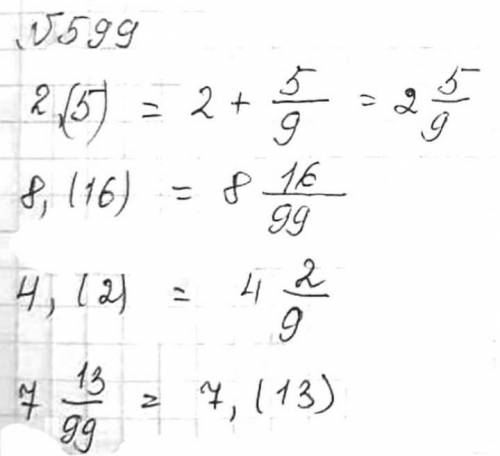 №599
2,(5) = 2 + 5/9 = 2 5/9
8,(16) = 8 16/99
4,(2) = 4 2/9
7 13/99 = 7,(13)